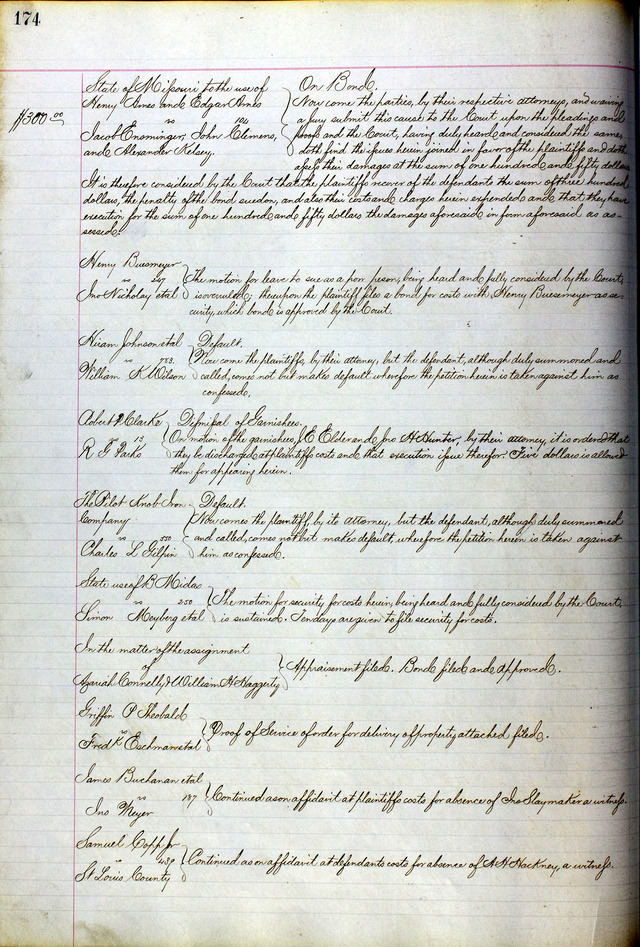 174
State of Missouri to the use of
Henry Ames and Edgar Ames
vs
Jacob Ensminger, John Clemens,
and Alexander Kelsey.
$300.00
On Bond.
Now come the parties, by their respective attorneys, and waiving
a jury submit this cause to the Court upon the pleadings and
proofs and the Court, having duly heard and considered the same,
doth find the issues herein joined in favor of the plaintiffs and doth
assess their damages at the sum of one hundred and fifty dollars
It is therefore considered by the Court that the plaintiffs recover of the defendants the sum of three hundred
dollars, the penalty of the bond sued on, and also their costs and charges herein expended and that they have
execution for the sum of one hundred and fifty dollars the damages aforesaid in form aforesaid as as-
sessed.
Henry Buesmeyer
vs
Jno Nicholay et al
The motion for leave to sue as a poor person, being heard and fully considered by the Court,
is overruled; thereupon the plaintiff files a bond for costs with Henry Buesemeyer as se-
curity, which bond is approved by the Court.
Hiram Johnson et al
vs 783.
William K Wilson
Default.
Now come the plaintiffs, by their attorney, but the defendant, although duly summoned and
called, comes not but makes default wherefore the petition herein is taken against him as
confessed.
Robert P Clarke
vs 13
R G Parks
Dismissal of Garnishees.
On motion of the garnishees, J E Elder and Jno H Hunter, by their attorney, it is ordered that
they be discharged at plaintiffs costs and that execution issue therefor. Five dollars is allowed
them for appearing herein.
The Pilot Knob Iron
Company
vs 550
Charles L Gilpin
Default.
Now comes the plaintiff, by its attorney, but the defendant, although duly summoned
and called, comes not but makes default, wherefore the petition herein is taken against
him as confessed.
State use of B Midas
vs 250
Simon Meyberg et al
The motion for security for costs herein, being heard and fully considered by the Court,
is sustained. Ten days are given to file security for costs.
In the matter of the assignment
of
Azariah Connelly & William H Haggerty
Appraisement filed. Bond filed and approved.
Griffin P Theobald
vs
Fredk Eschman et al
Proof of Service of order for delivery of property attached filed.
James Buchanan et al
vs 187
Jno Meyer
Continued as on affidavit at plaintiffs costs for absence of Jno Slaymaker a witness.
Samuel Copp Jr
vs 489
St Louis County
Continued as on affidavit at defendants costs for absence of A H Hackney, a witness.